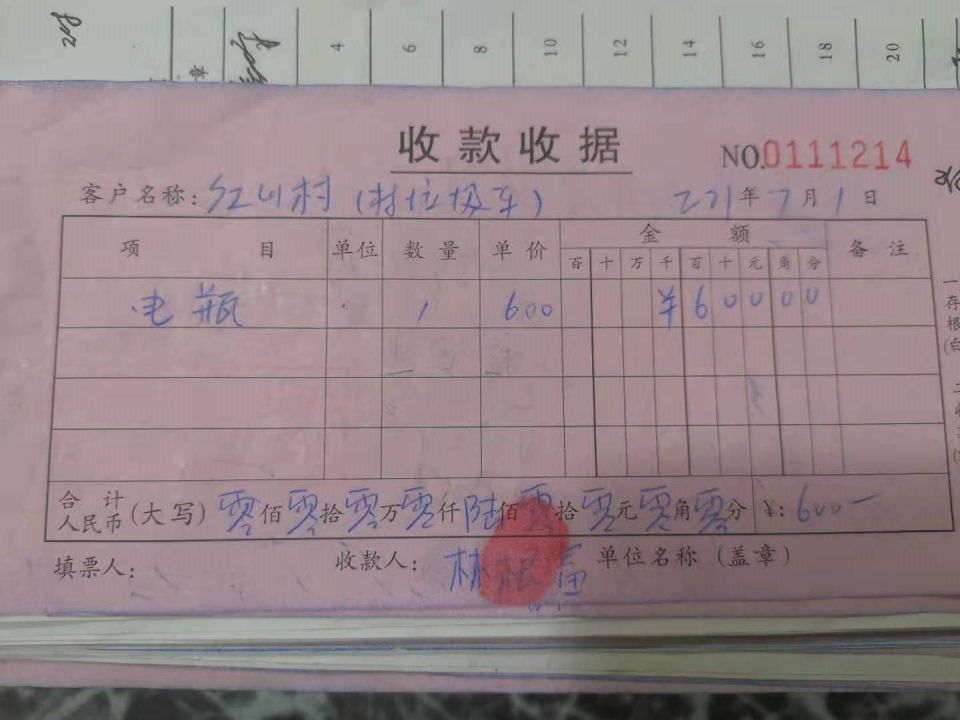 4 6 8 10 12 14 16 18 20
章
收款收据
NO.0111214
客户名称: 红川村 (村垃圾车) 2021年7月1日
项目 单位 数量 单价 金额 备注
百 十 万 千 百 十 元 角 分
电瓶 1 600 ¥60000
合计人民币 (大写) 零佰零拾零万零仟陆佰零拾零元零角零分 ¥: 600—
填票人: 收款人: 林 富 单位名称 (盖章)
一
存
根
(白
二